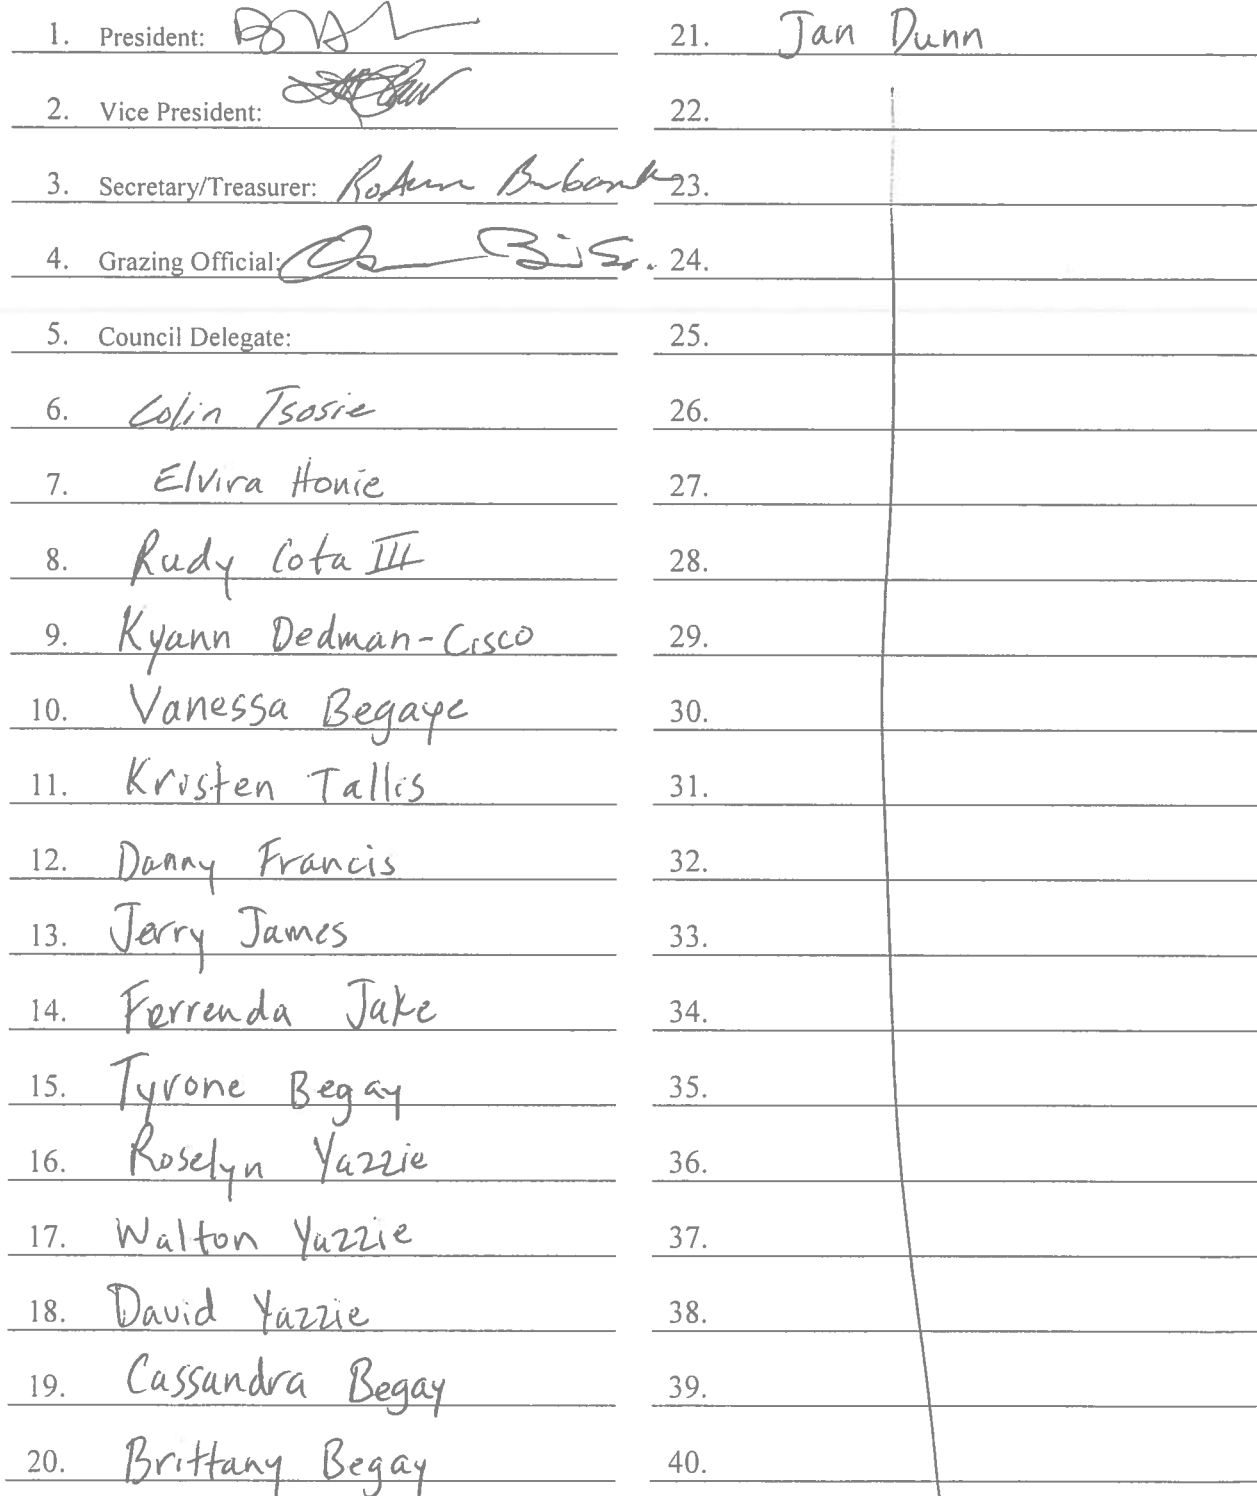 1. President:
2. Vice President:
3. Secretary/Treasurer: RoAnn Burbank
4. Grazing Official:
5. Council Delegate:
6. Colin Tsosie
7. Elvira Honie
8. Rudy Cota III
9. Kyann Dedman-Cisco
10. Vanessa Begaye
11. Kristen Tallis
12. Danny Francis
13. Jerry James
14. Ferrenda Jake
15. Tyrone Begay
16. Roselyn Yazzie
17. Walton Yazzie
18. David Yazzie
19. Cassandra Begay
20. Brittany Begay
21. Jan Dunn
22.
23.
24.
25.
26.
27.
28.
29.
30.
31.
32.
33.
34.
35.
36.
37.
38.
39.
40.